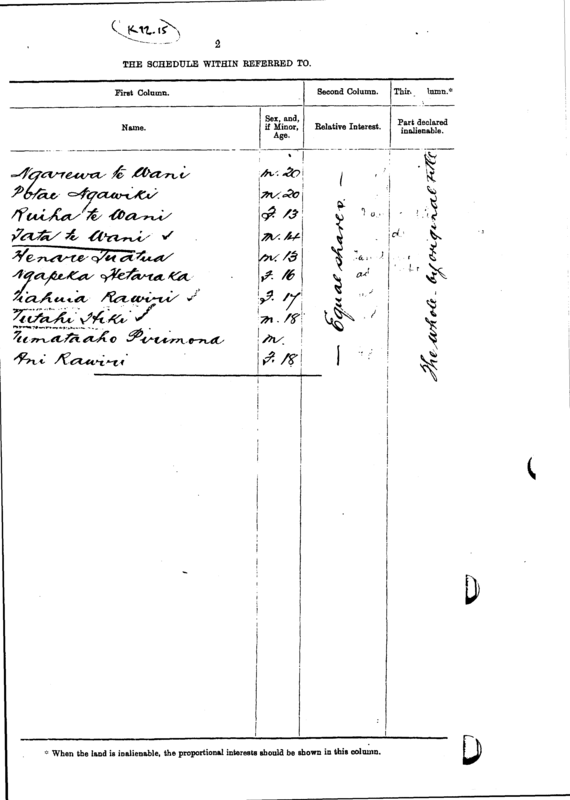 K22.15
2
THE SCHEDULE WITHIN REFERRED TO.
First Column. Second Column. Thir lumn.*
Name. Sex, and, if Minor, Age. Relative Interest. Part declared inalienable.
Ngarewa te Wani m. 20
Potae Ngawiki m. 20
Ruiha te Wani F. 13
Tata te Wani m. 14
Henare Tuatua m. 13
Ngapeka Hetaraka F. 16
Tiahuia Rawiri F. 17
Tutahi Hiki m. 18
Tumataaho Pirimona m.
Ani Rawiri F. 18
— Equal shares. —
The whole by original title
* When the land is inalienable, the proportional interests should be shown in this column.
D
D